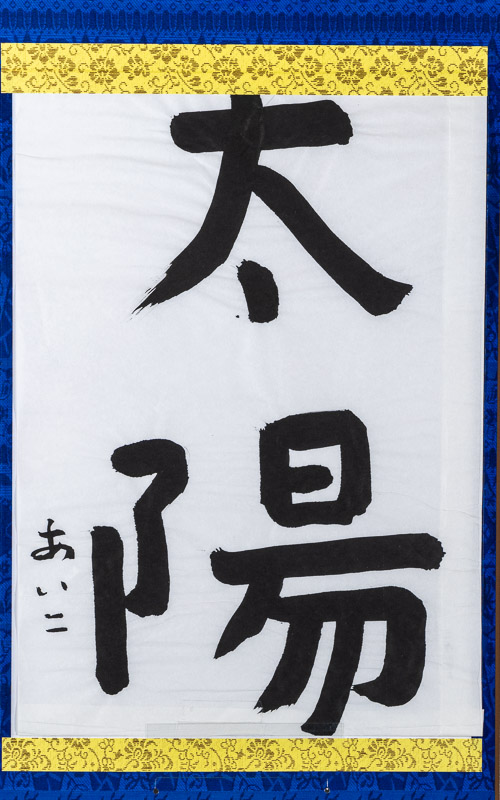 太陽
あいこ